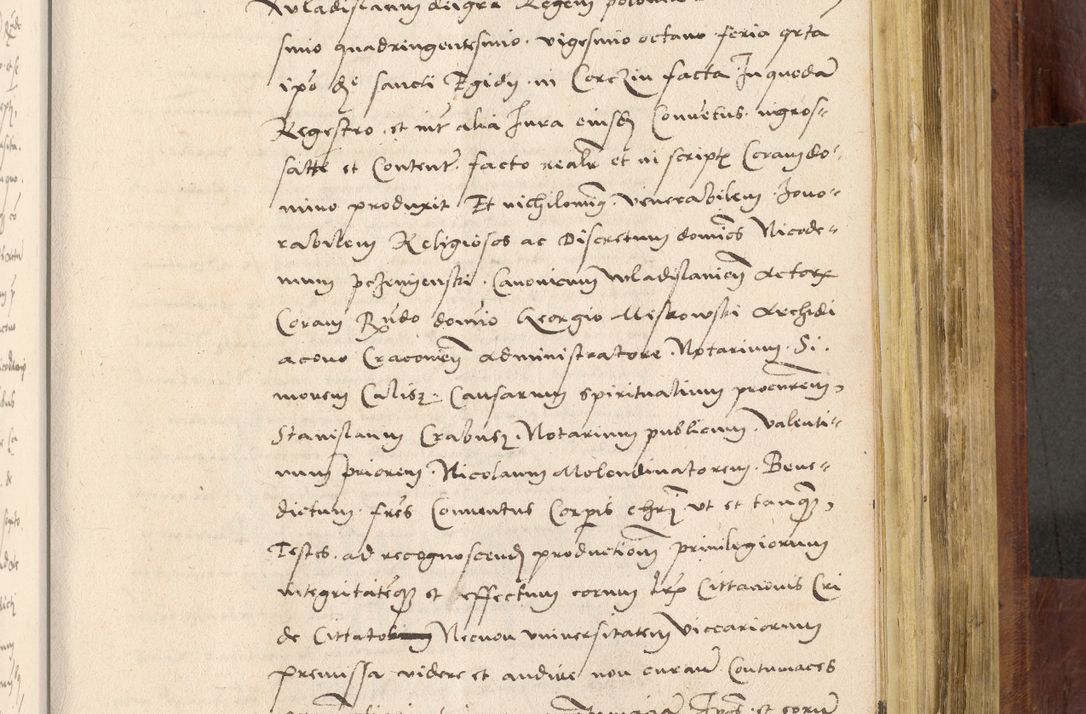 Wladislaum dei gra Regem polonie
simo quadringentesimo vigesimo octavo feria qrta
ipo die sancti Egidy in Corczin facta In quodā
Regestro et int alia Iura eiusdē Conventus ingros-
satte et Content facto realr et in scriptis Coram do-
mino produxit Et nichilominus venerabilem hono-
rabilem Religiosos ac Discretum dominos Nicode-
mum pczenyenski Canonicum wladislavien Actorx
Coram Rndo domino Georgio Miskowski Archidi
acono Cracovien administratore Notarium Si-
monem Calisz Causarum spiritualium procurem
Stanislaum Crabusz Notarium publicum Valenti-
num priorem Nicolaum Molendinatorem Bene-
dictum fres Conventus Corpis chri ut et tanq
Testes ad recognoscend productionem privilegiorum
integritateq et effectum eorum lrx Cittacionis Cri
de Cittato Necnon universitatem Viccariorum
premissa videre et audire non curavit Contumaces
et eorum